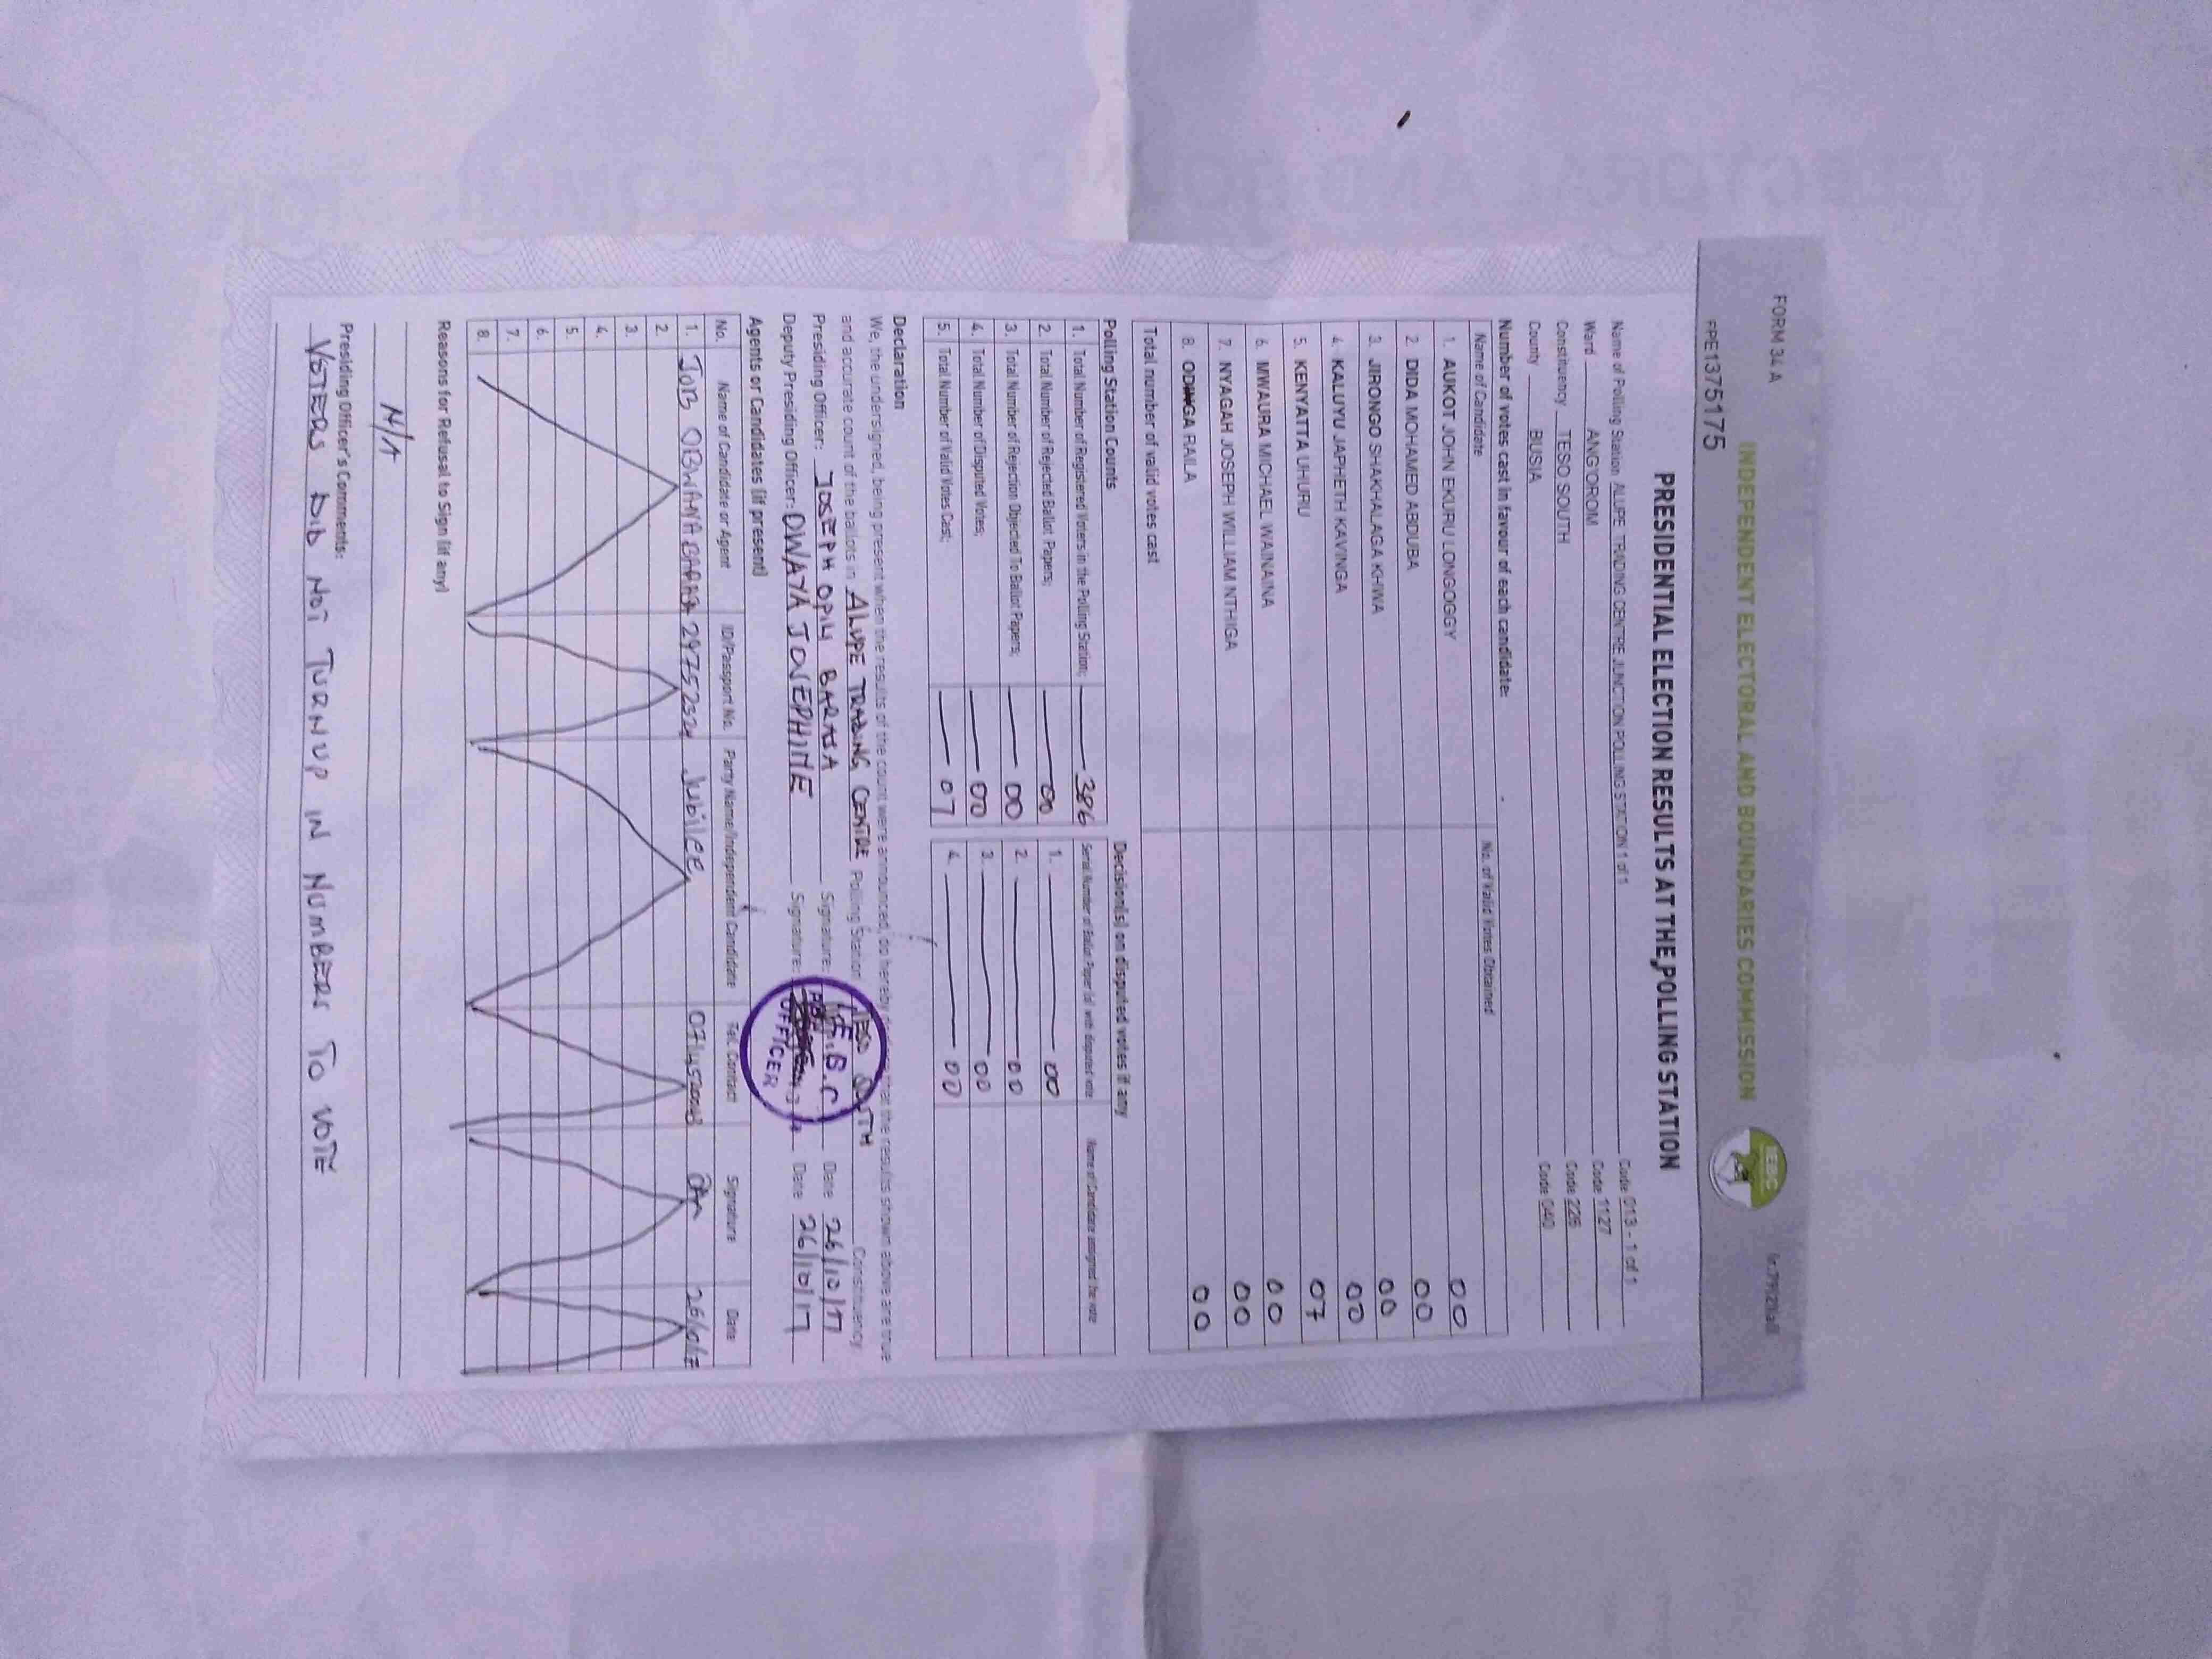 FORM 34 A
INDEPENDENT ELECTORAL AND BOUNDARIES COMMISSION
IEBC
PPE1375175
PRESIDENTIAL ELECTION RESULTS AT THE POLLING STATION
Name of Polling Station ALUPE TRADING CENTRE JUNCTION POLLING STATION 1 of 1 Code 013 - 1 of 1
Ward ANG'OROM Code 1127
Constituency TESO SOUTH Code 226
County BUSIA Code 040
Number of votes cast in favour of each candidate:
Name of Candidate No. of Valid Votes Obtained
1. AUKOT JOHN EKURU LONGOGGY 00
2. DIDA MOHAMED ABDUBA 00
3. JIRONGO SHAKHALAGA KHWA 00
4. KALUYU JAPHETH KAVINGA 00
5. KENYATTA UHURU 07
6. MWAURA MICHAEL WAINAINA 00
7. NYAGAH JOSEPH WILLIAM NTHIGA 00
8. ODINGA RAILA 00
Total number of valid votes cast
Polling Station Counts Decision(s) on disputed votes if any
1. Total Number of Registered Voters in the Polling Station; 386 Serial Number of Ballot Paper (s) with disputed vote Name of Candidate assigned the vote
2. Total Number of Rejected Ballot Papers; 00 1. 00
3. Total Number of Rejection Objected To Ballot Papers; 00 2. 00
4. Total Number of Disputed Votes; 00 3. 00
5. Total Number of Valid Votes Cast; 07 4. 00
Declaration
We, the undersigned, being present when the results of the count were announced, do hereby that the results shown above are true
and accurate count of the ballots in ALUPE TRADING CENTRE Polling Station TESO SOUTH Constituency
Presiding Officer: JOSEPH OPILI BARASA Signature: Date 26/10/17
Deputy Presiding Officer: OWAYA JOSEPHINE Signature: Date 26/10/17
I.E.B.C
OFFICER
Agents or Candidates (if present)
No. Name of Candidate or Agent ID/Passport No. Party Name/Independent Candidate Tel. Contact Signature Date
1. JOB Jubilee
2.
3.
4.
5.
6.
7.
8.
Reasons for Refusal to Sign (if any)
N/A
Presiding Officer's Comments:
VOTERS DID NOT TURNUP IN NUMBERS TO VOTE